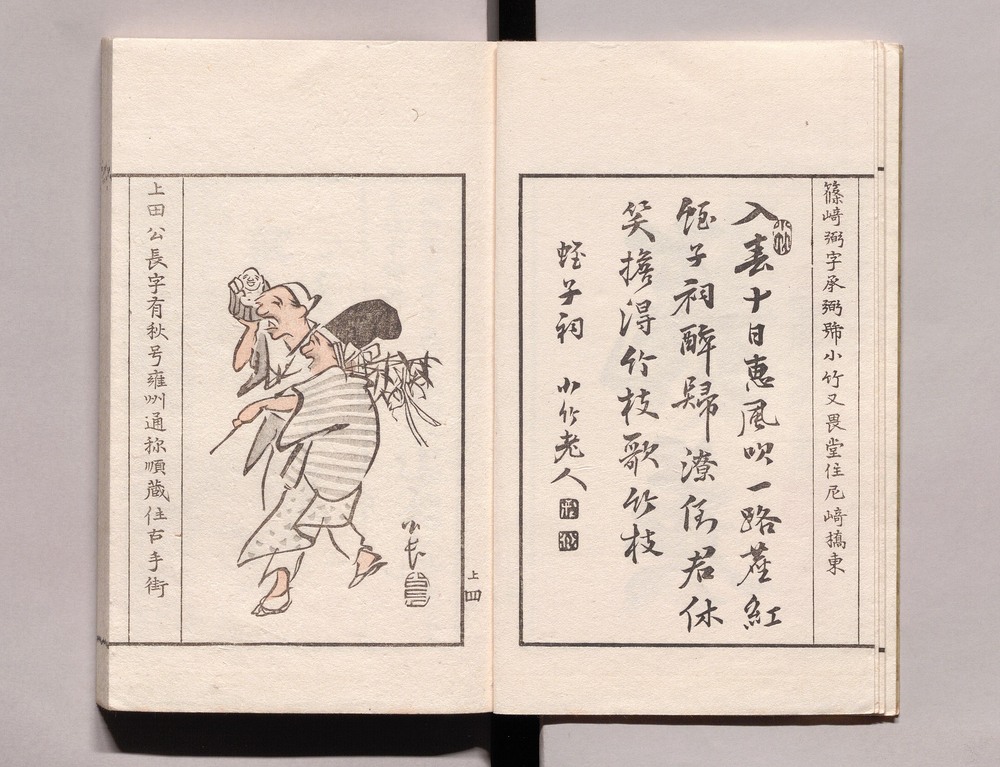 篠崎弼字承弼號小竹又畏堂住尼崎橋東
入春十日惠風吹一路塵紅
蛭子祠醉歸潦倒君休
笑擔得竹枝歌竹枝
蛭子祠 小竹老人
上四
公長
上田公長字有秋号雍州通称順蔵住古手街